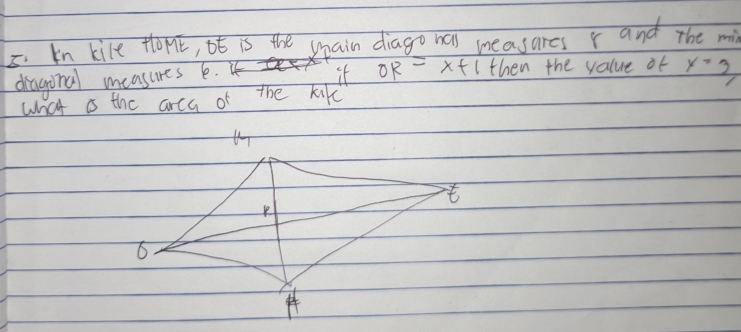 5. In kite HOME, OE is the main diagonal measures 8 and the min
diagonal measures 6. if if OR = x+1 then the value of x = 3,
what is the area of the kite
M
E
R
O
H